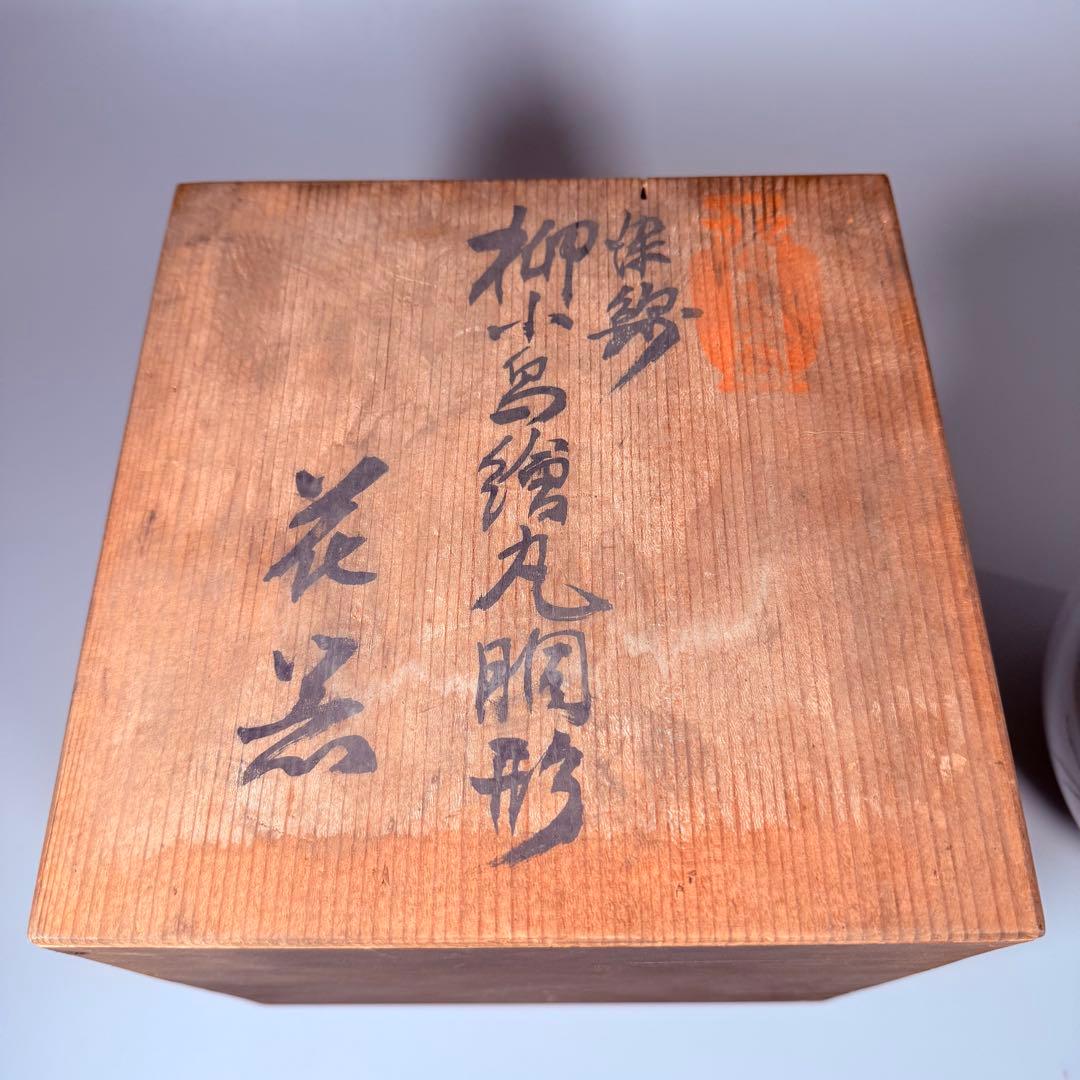 染錦
柳小鳥繪丸胴形
花器